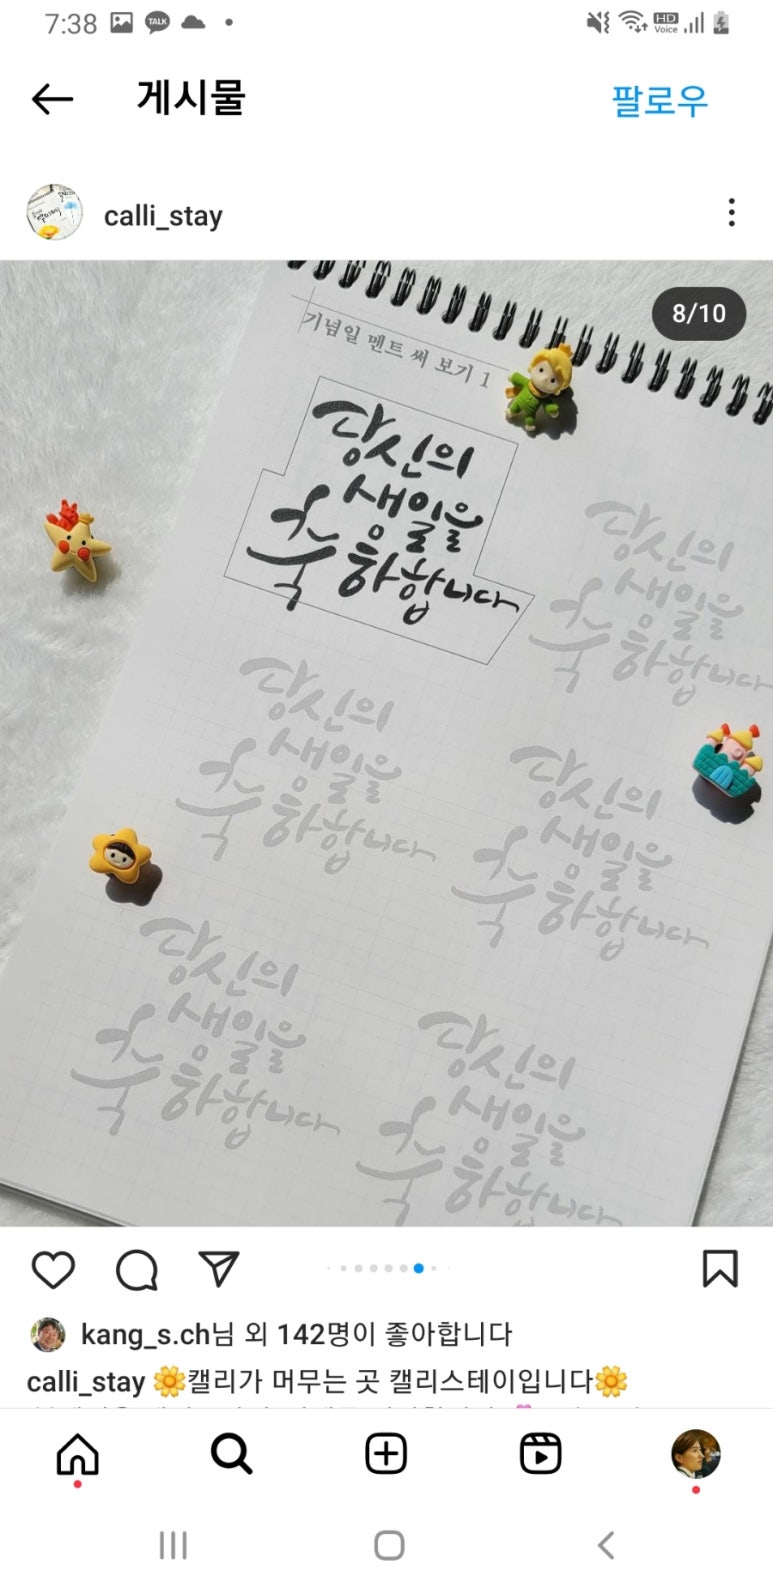 7:38
TALK
HD
Voice
게시물
팔로우
calli_stay
8/10
기념일 멘트 써 보기 1
당신의
생일을
축하합니다
당신의
생일을
축하합니다
당신의
생일을
축하합니다
당신의
생일을
축하합니다
당신의
생일을
축하합니다
당신의
생일을
축하합니다
kang_s.ch님 외 142명이 좋아합니다
calli_stay 🌼캘리가 머무는 곳 캘리스테이입니다🌼